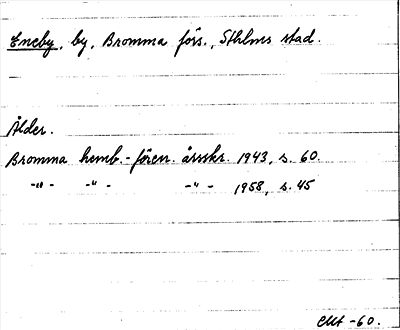 Eneby, by, Bromma förs., Sthlms stad.
Ålder.
Bromma hemb.-fören. årsskr. 1943, s. 60.
-"- -"- -"- 1958, s. 45
-60.